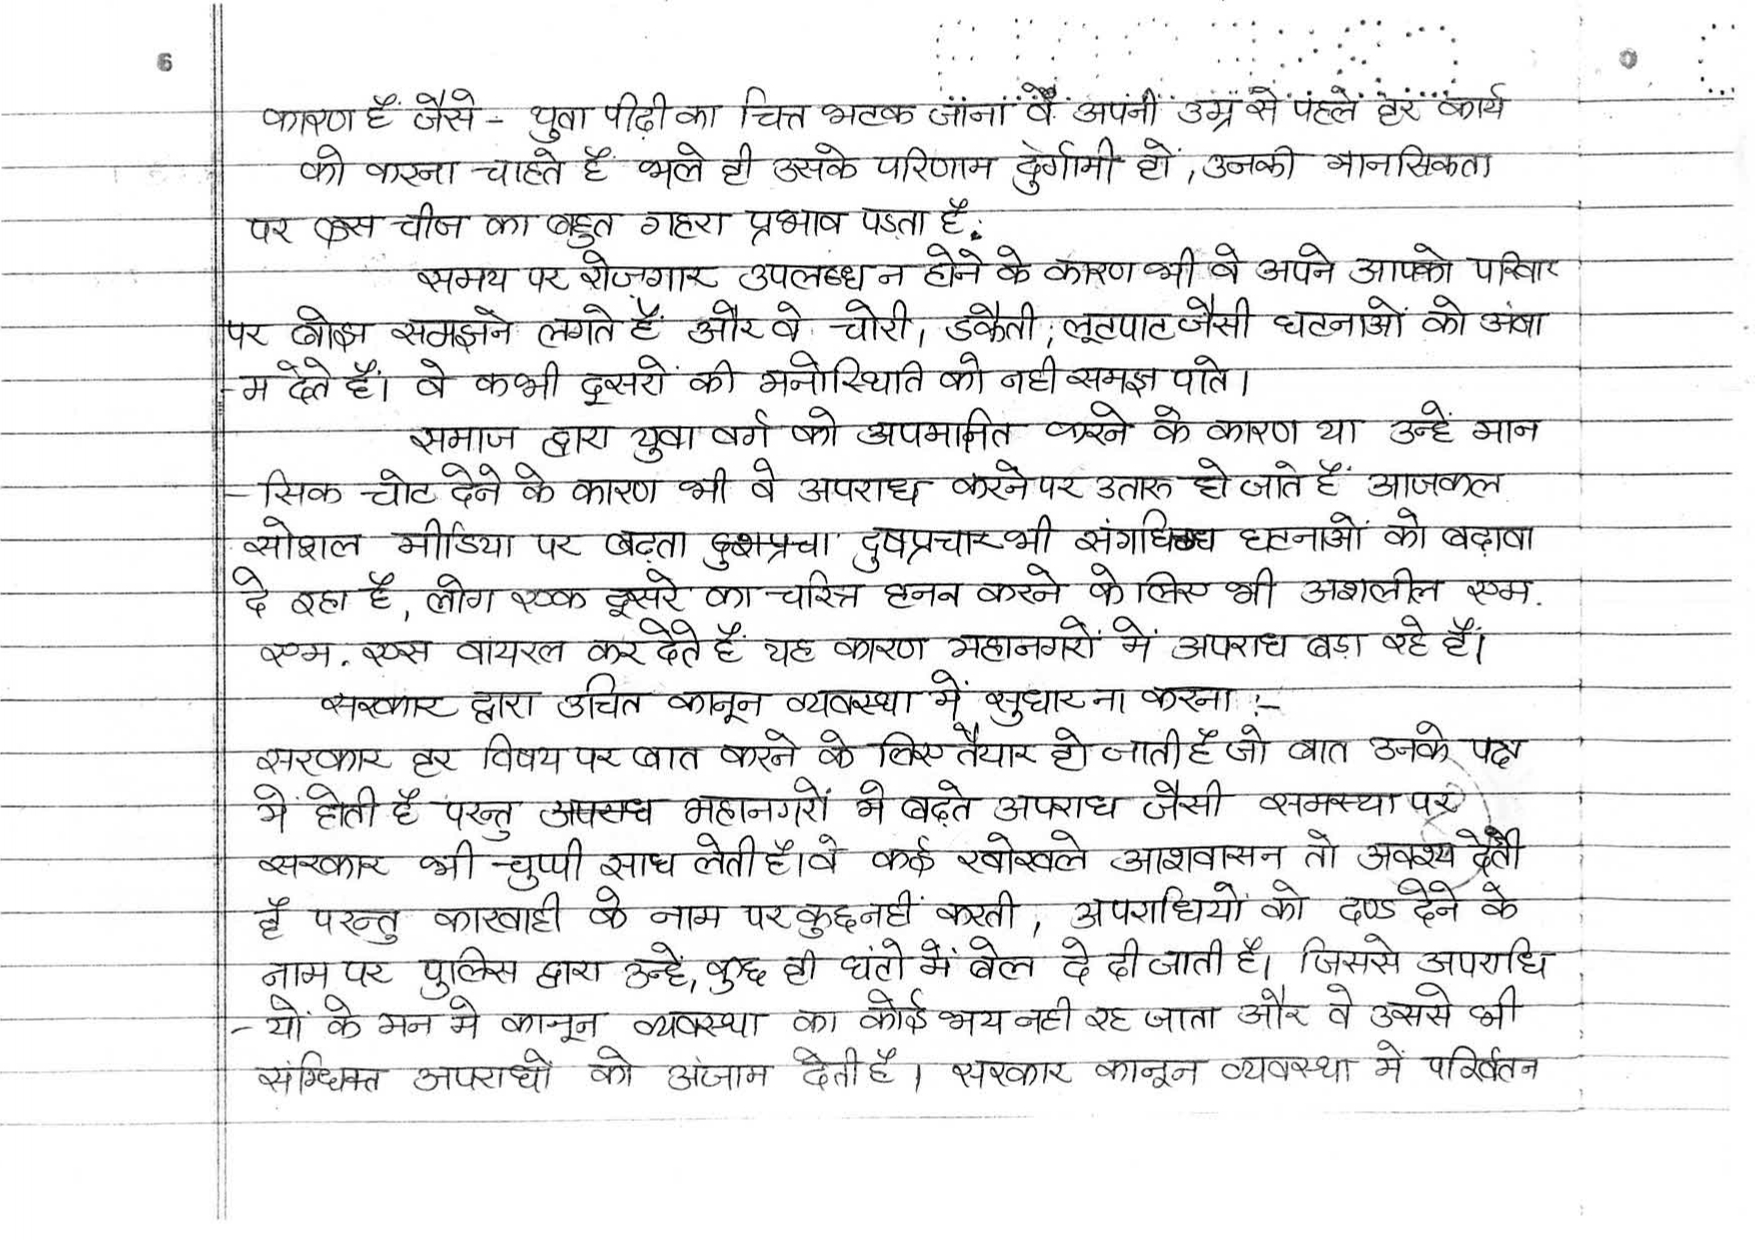 6
कारण हैं जैसे - युवा पीढ़ी का चित्त भटक जाना वे अपनी उम्र से पहले हर कार्य
को करना चाहते हैं भले ही उसके परिणाम दुर्गामी हों, उनकी मानसिकता
पर इस चीज का बहुत गहरा प्रभाव पड़ता है।
समय पर रोजगार उपलब्ध न होने के कारण भी वे अपने आपको परिवार
पर बोझ समझने लगते हैं और वे चोरी, डकैती, लूटपाट जैसी घटनाओं को अंजा
-म देते हैं। वे कभी दूसरों की मनोस्थिति को नही समझ पाते।
समाज द्वारा युवा वर्ग को अपमानित करने के कारण या उन्हें मान
- सिक चोट देने के कारण भी वे अपराध करने पर उतारू हो जाते हैं आजकल
सोशल मीडिया पर बढ़ता दुषप्रचार भी घटनाओं को बढ़ावा
दे रहा है, लोग एक दूसरे का चरित्र हनन करने के लिए भी अशलील एम.
एम. एस वायरल कर देते हैं यह कारण महानगरों में अपराध बड़ा रहे हैं।
सरकार द्वारा उचित कानून व्यवस्था में सुधार ना करना :-
सरकार हर विषय पर बात करने के लिए तैयार हो जाती है जो बात उनके पक्ष
में होती है परन्तु महानगरों मे बढ़ते अपराध जैसी समस्या पर
सरकार भी चुप्पी साध लेती है। वे कई खोखले आशवासन तो अवश्य देती
है परन्तु कारवाही के नाम पर कुछ नहीं करती, अपराधियों को दण्ड देने के
नाम पर पुलिस द्वारा उन्हे, कुछ ही घंतो में बेल दे दी जाती है। जिससे अपराधि
- यों के मन मे कानून व्यवस्था का कोई भय नही रह जाता और वे उससे भी
अपराधों को अंजाम देती है। सरकार कानून व्यवस्था में परिर्वतन